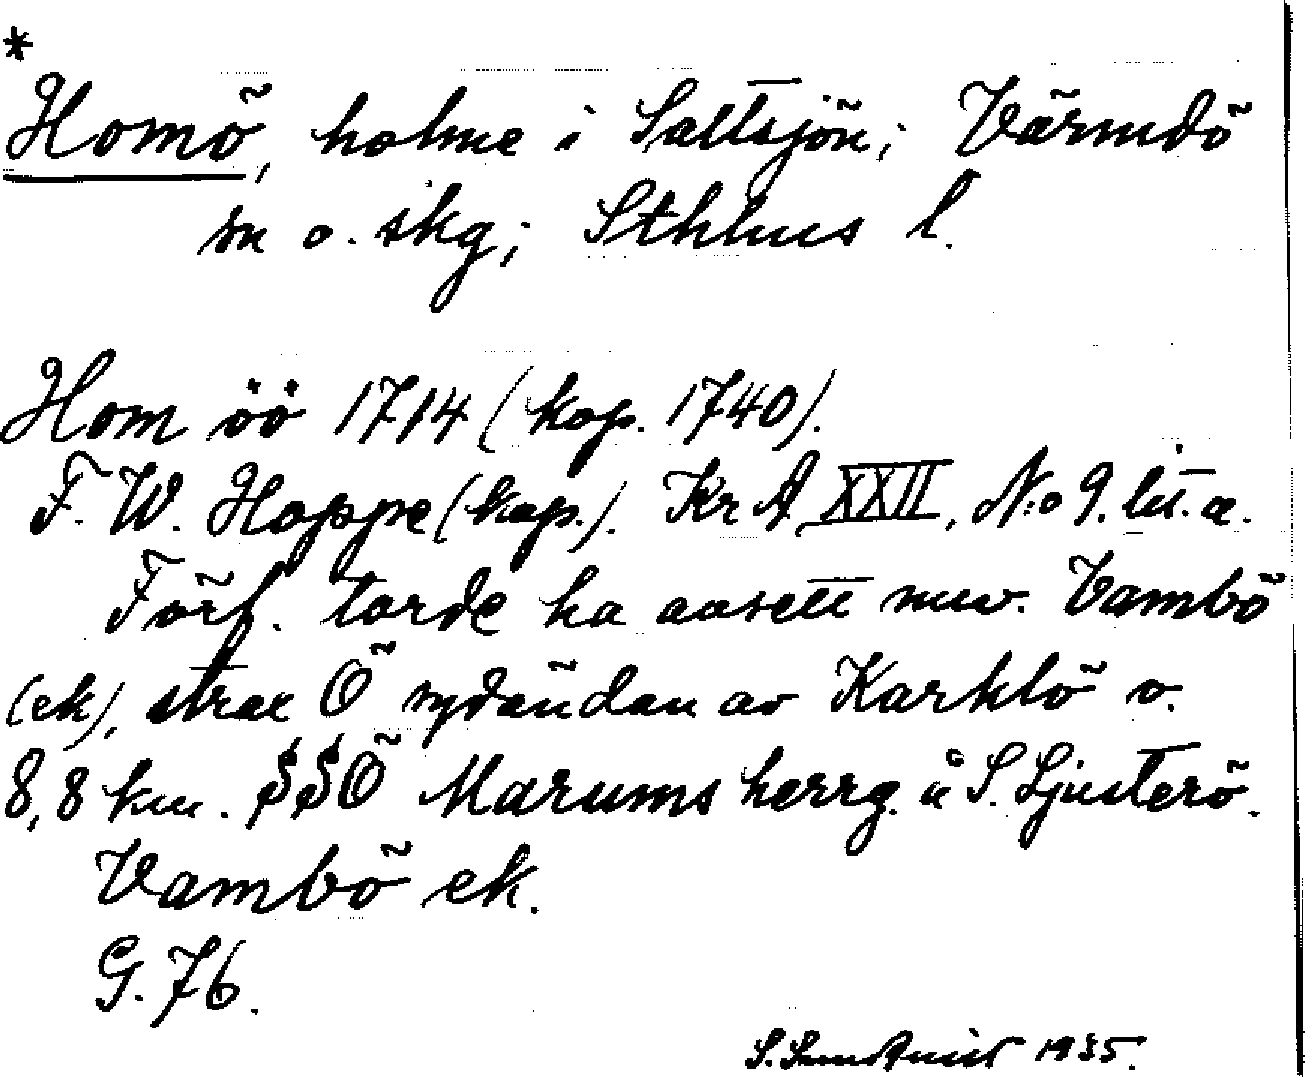 *
Homö, holme i Saltsjön; Värmdö
sn o. skg; Sthlms l.
Hom öö 1714 (kop. 1740).
F. W. Hoppe (kop.). Kr A XXII, No 9. lit. a.
Förf. torde ha avsett nuv. Vambö
(ek), strax Ö sydändan av Karklö o.
8,8 km. SSÖ Marums herrg. å S. Ljusterö.
Vambö ek.
G. 76.
S. 1935.